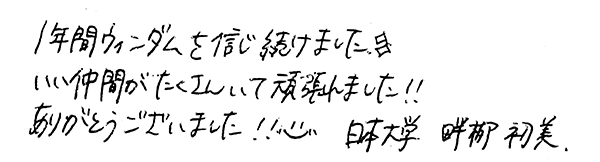 1年間ウィンダムを信じ続けました
いい仲間がたくさんいて頑張れました!!
ありがとうございました!! 日本大学 畔柳 初美.